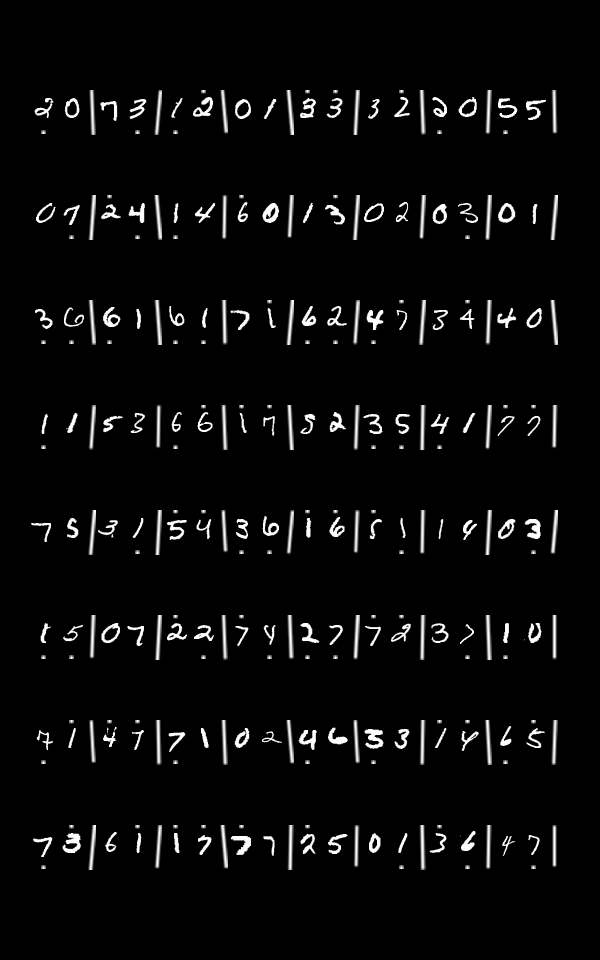 2 0 | 7 3 | 1 2 | 0 1 | 3 3 | 3 2 | 2 0 | 5 5 |
0 7 | 2 4 | 1 4 | 6 0 | 1 3 | 0 2 | 0 3 | 0 1 |
3 6 | 6 1 | 6 1 | 7 1 | 6 2 | 4 7 | 3 4 | 4 0 |
1 1 | 5 3 | 6 6 | 1 7 | 5 2 | 3 5 | 4 1 | 7 7 |
7 5 | 3 1 | 5 4 | 3 6 | 1 6 | 5 1 | 1 4 | 0 3 |
1 5 | 0 7 | 2 2 | 7 4 | 2 7 | 7 2 | 3 7 | 1 0 |
7 1 | 4 7 | 7 1 | 0 2 | 4 6 | 3 3 | 1 4 | 6 5 |
7 3 | 6 1 | 1 7 | 7 7 | 2 5 | 0 1 | 3 6 | 4 7 |